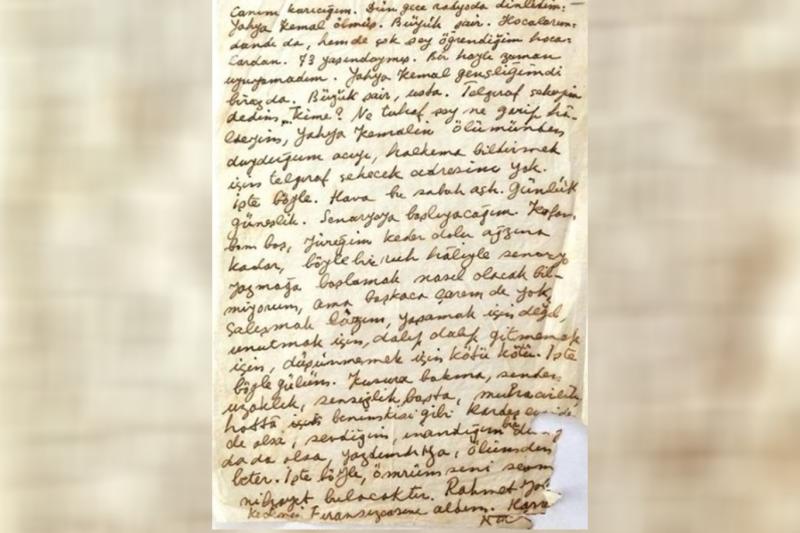 Canım karıcığım. Dün gece radyoda dinledim:
Yahya Kemal ölmüş. Büyük şair. Hocalarım-
dandı da, hem de çok şey öğrendiğim hoca-
lardan. 73 yaşındaymış. Bir hayli zaman
uyuyamadım. Yahya Kemal gençliğimdi
biraz da. Büyük şair, usta. Telgraf çekeyim
dedim, kime? Ne tuhaf şey ne garip hâ-
ldeyim, Yahya Kemalin ölümünden
duyduğum acıyı, halkıma bildirmek
için telgraf çekecek adresim yok.
İşte böyle. Hava bu sabah açık. Günlük
güneşlik. Senaryoya başlıyacağım. Kafam
bom boş, yüreğim keder dolu ağzına
kadar, böyle bir ruh hâliyle senaryo
yazmağa başlamak nasıl olacak bil-
miyorum, ama başkaca çarem de yok,
çalışmak lâzım, yaşamak için değil,
unutmak için, dalıp dalıp gitmemek
için, düşünmemek için kötü kötü. İşte
böyle gülüm. Kusura bakma, senden
uzaklık, sensizlik başta, muhacirlik
hattâ benimkisi gibi kardeş evinde
de olsa, sevdiğim, inandığım bir
da da olsa, ölümden
beter. İşte böyle, ömrüm seni
nihayet bulacaktır. Rahmet
Fransızcasını aldım.